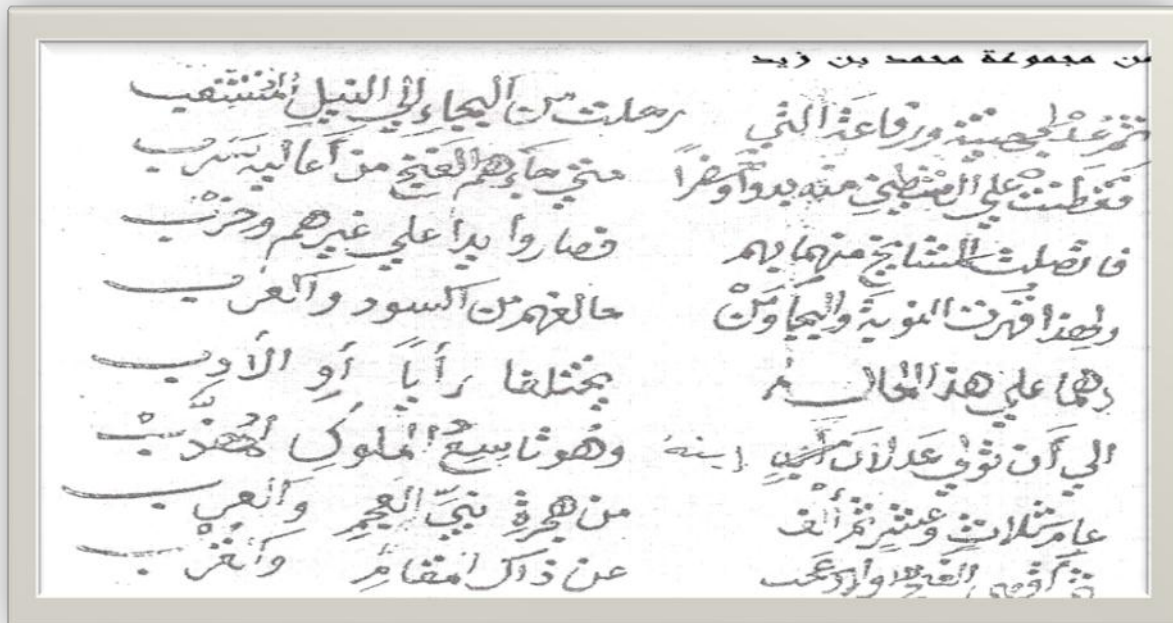 من مجموعة محمد بن زيد
ثم غدا لجهينة ورفاعة التي رحلت من البجاء إلى النيل
فغطت علي منه بدواً وحضراً متي جاءهم الفتح من أعاليه
فاتصلت المشايخ منهما بهم فصاروا يداً علي غيرهم وحزب
ولهذا قهرت النوبة والبجا ومن حالفهم من السود والعرب
وهما علي هذا الحال لم يختلفا رأياً أو الأدب
الي أن تولي عدلان ابنه وهو تاسع الملوك المهذب
عام ثلاث وعشر ثم ألف من هجرة نبي العجم والعرب
عن ذاك المقام